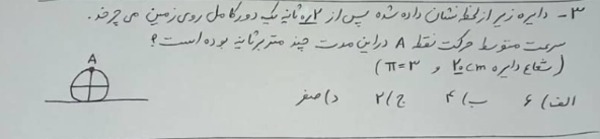 ۳- دایره زیر از لحظه نشان داده شده پس از ۰٫۲ ثانیه یک دور کامل روی زمین می چرخد.
سرعت متوسط حرکت نقطه A در این مدت چند متر بر ثانیه بوده است؟
(شعاع دایره ۲۰cm و π=۳)
A
الف) ۶ ب) ۴ ج) ۲ د) صفر